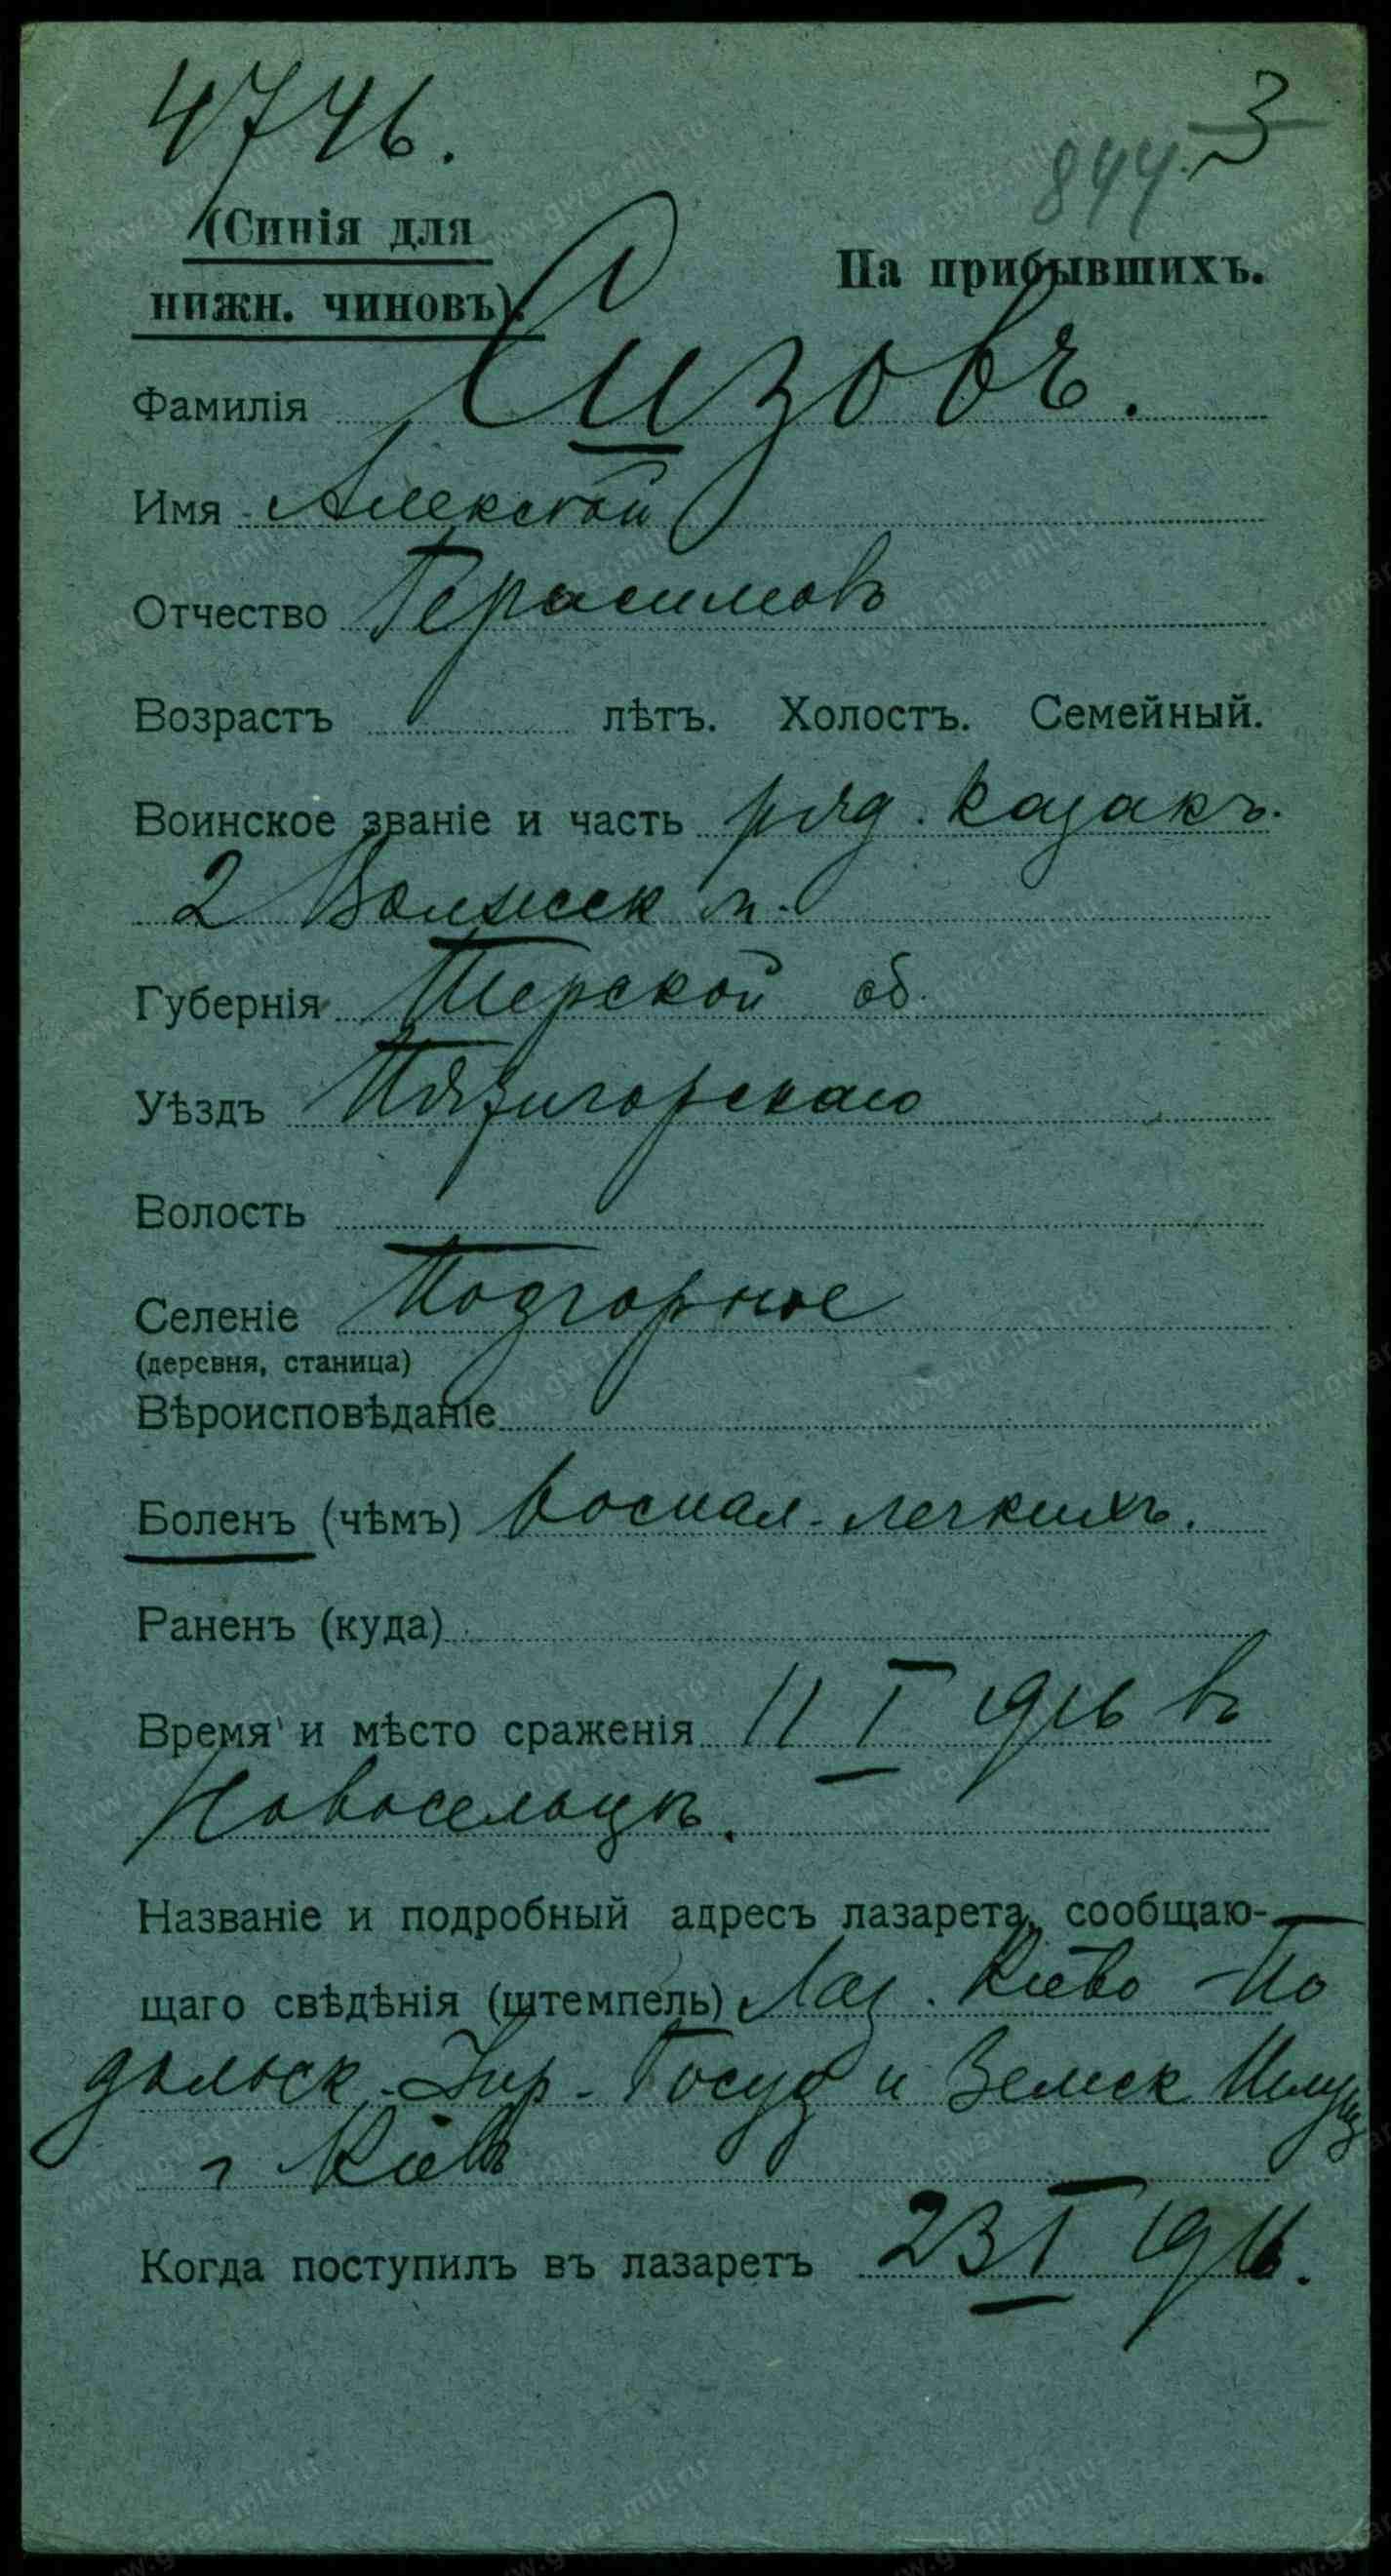 4746.
3
844.
(Синія для
нижн. чиновъ).
На прибывшихъ.
Фамилія Сизовъ.
Имя Алексѣй
Отчество Герасимовъ
Возрастъ лѣтъ. Холостъ. Семейный.
Воинское званіе и часть ряд. казакъ.
2 Волжск п.
Губернія Терской об.
Уѣздъ Пятигорскаго
Волость
Селеніе Подгорное
(деревня, станица)
Вѣроисповѣданіе
Боленъ (чѣмъ) воспал. легкихъ.
Раненъ (куда)
Время и мѣсто сраженія 11 I 1916 въ
Новоселыцѣ.
Названіе и подробный адресъ лазарета, сообщаю-
щаго свѣдѣнія (штемпель) Лаз. Кіево-По
дольск. Упр. Госуд и Земск Имущ
г Кіевъ
Когда поступилъ въ лазаретъ 23 I 1916.